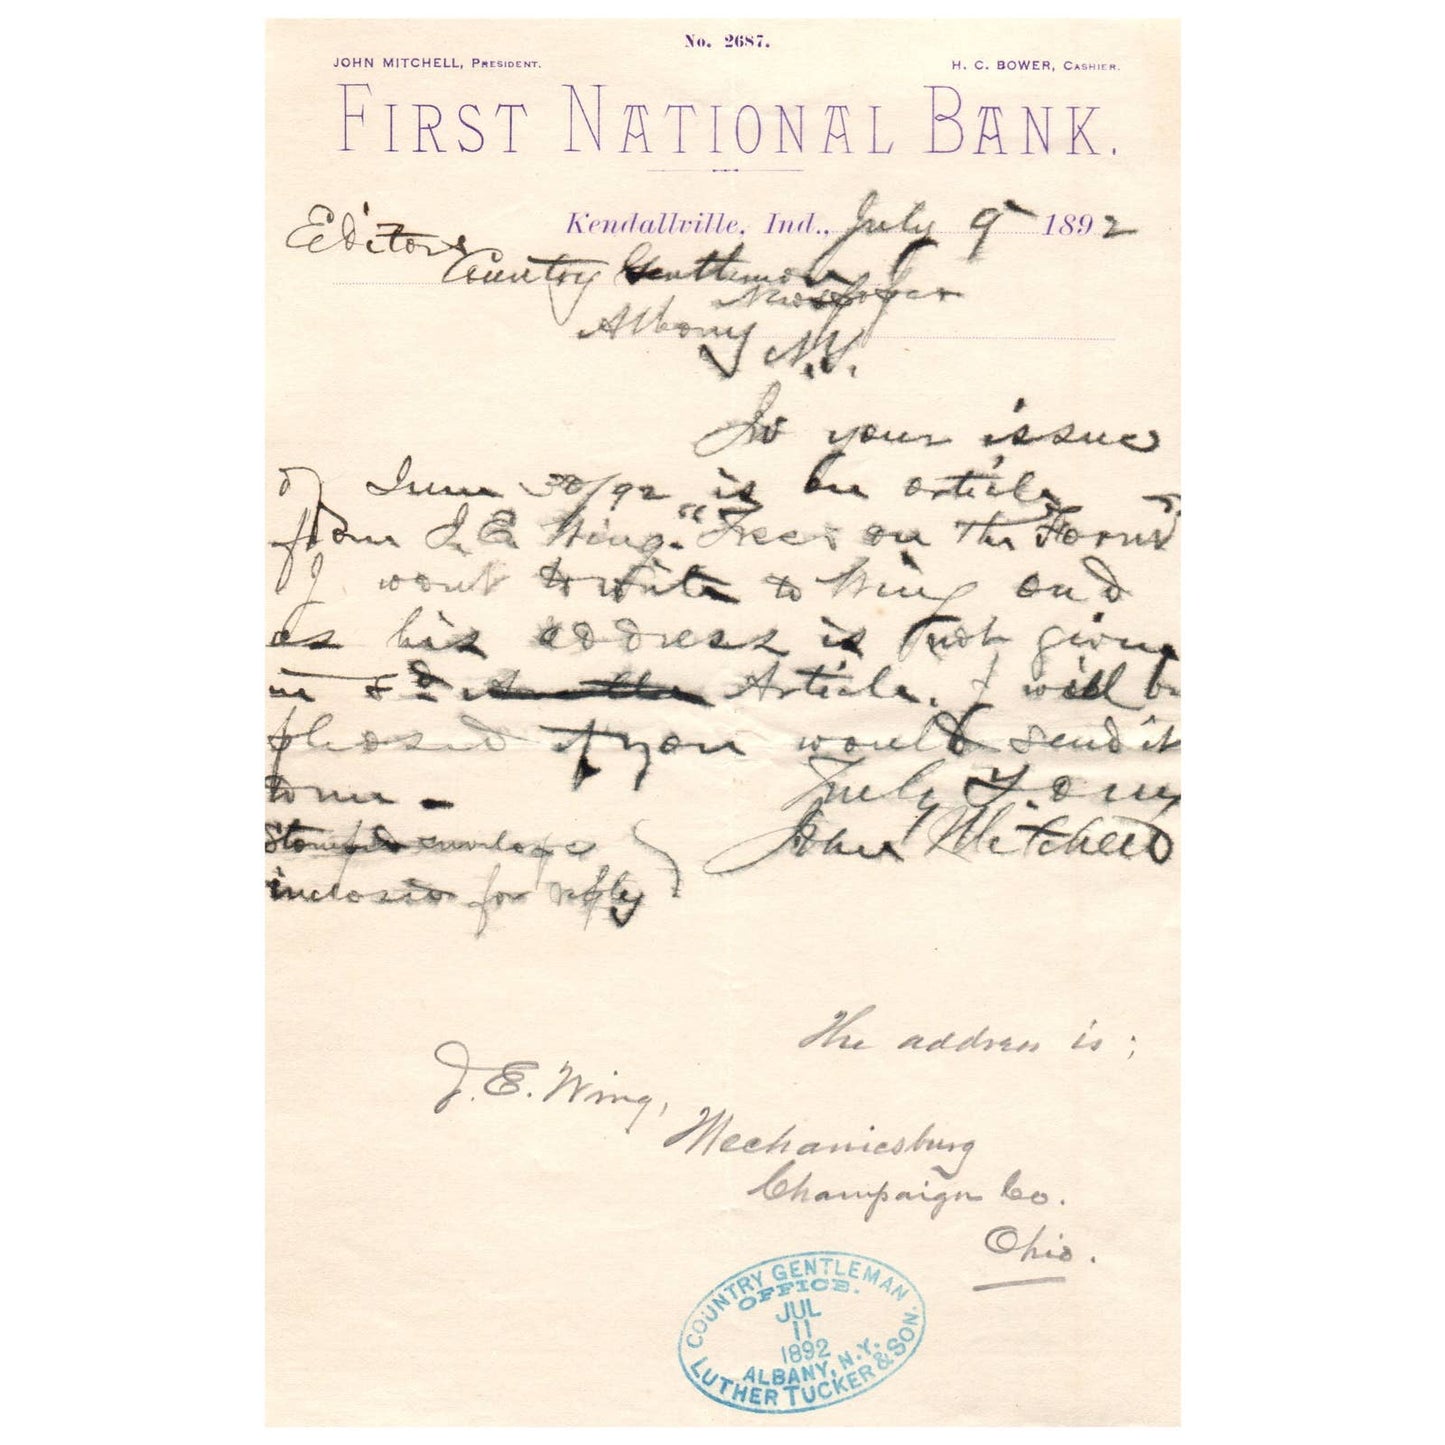 No. 2687.
JOHN MITCHELL, PRESIDENT. H. C. BOWER, CASHIER.
FIRST NATIONAL BANK.
Kendallville, Ind., July 9 1892
Editors
Country Gentleman
Newspaper
Albany
N.Y.
In your issue
of June 30/92 is an article
from J. E. Wing. "Trees on the Farm"
I want to write to Wing and
as his address is not given
in sd Article. I will be
pleased if you would send it
to me -
Truly Yours
John Mitchell
Stamped envelope
inclosed for reply
The address is ;
J. E. Wing,
Mechanicsburg
Champaign Co.
Ohio.
COUNTRY GENTLEMAN
OFFICE.
JUL
11
1892
ALBANY, N.Y.
LUTHER TUCKER & SON.